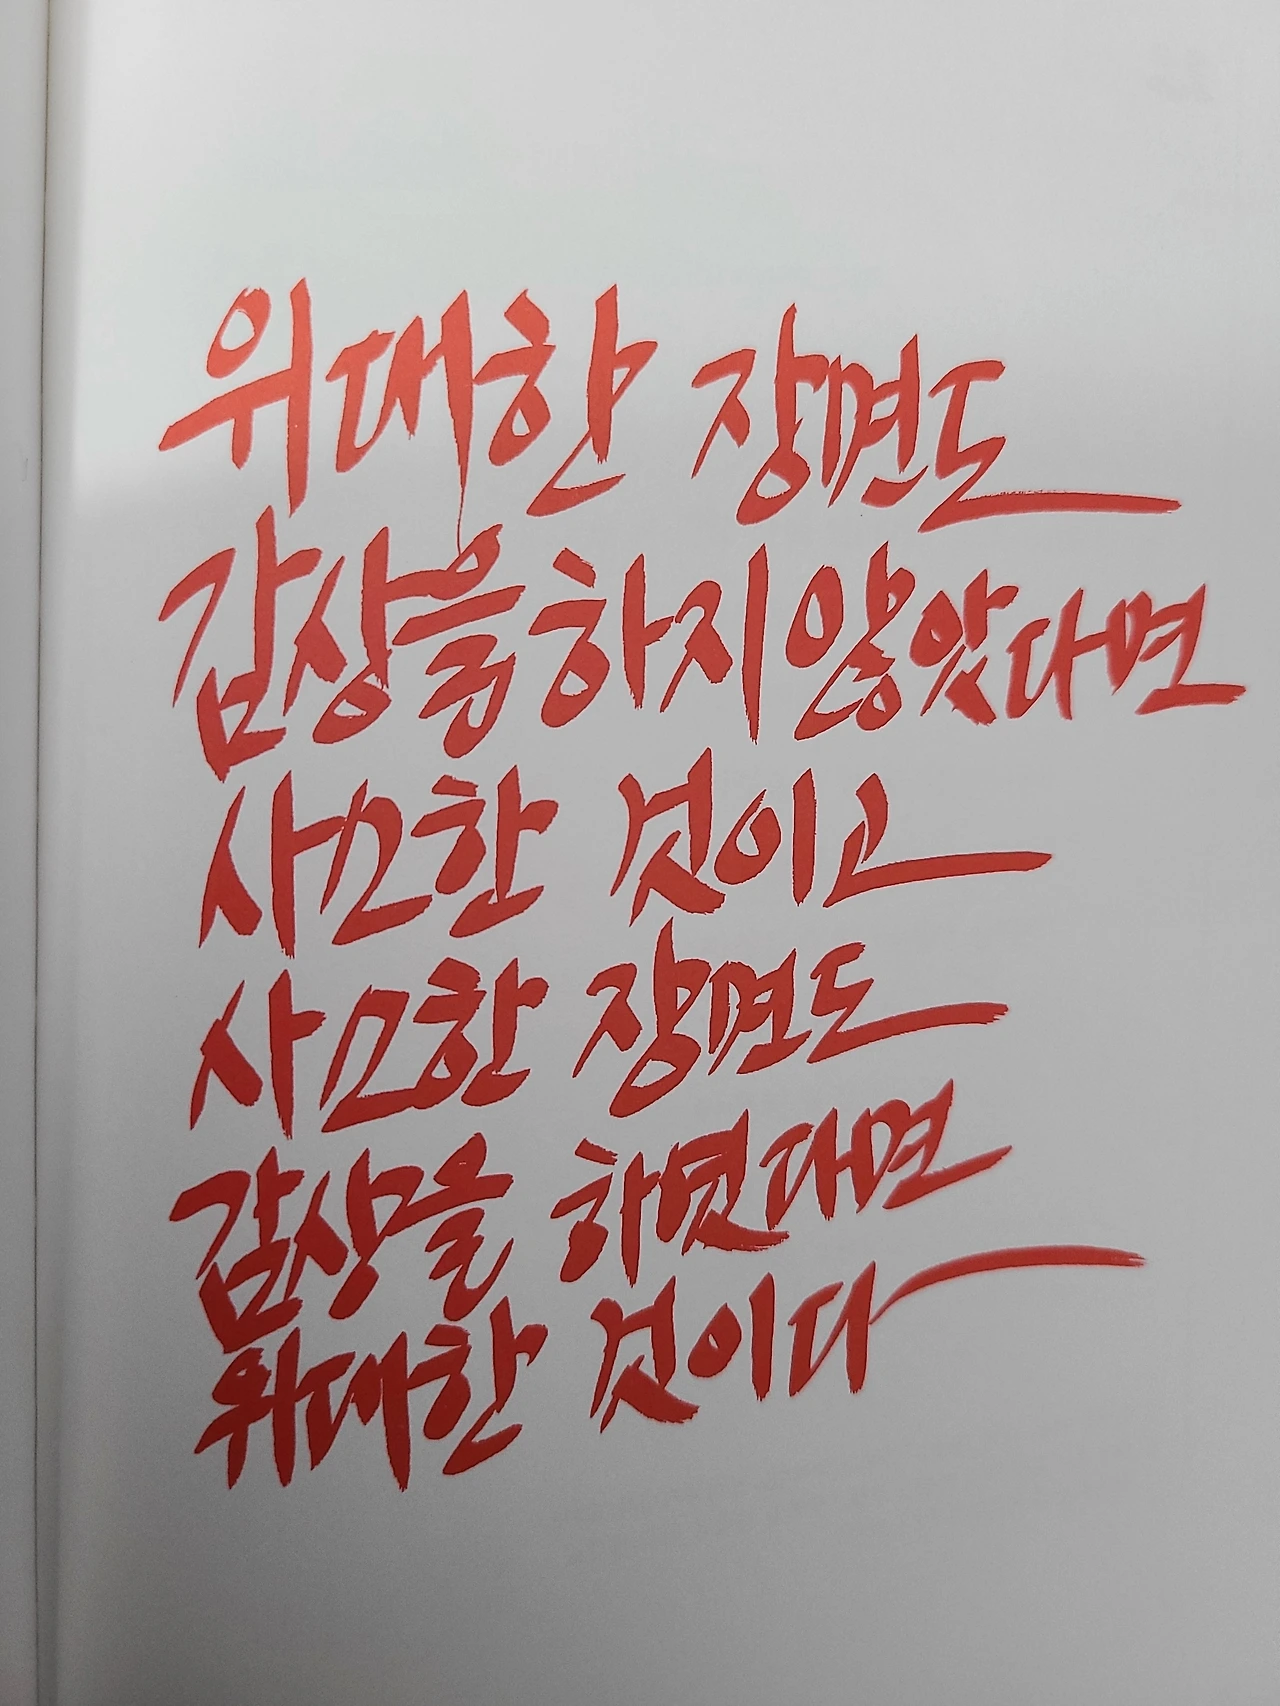 위대한 장면도
감상을 하지 않았다면
사소한 것이고
사소한 장면도
감상을 하였다면
위대한 것이다